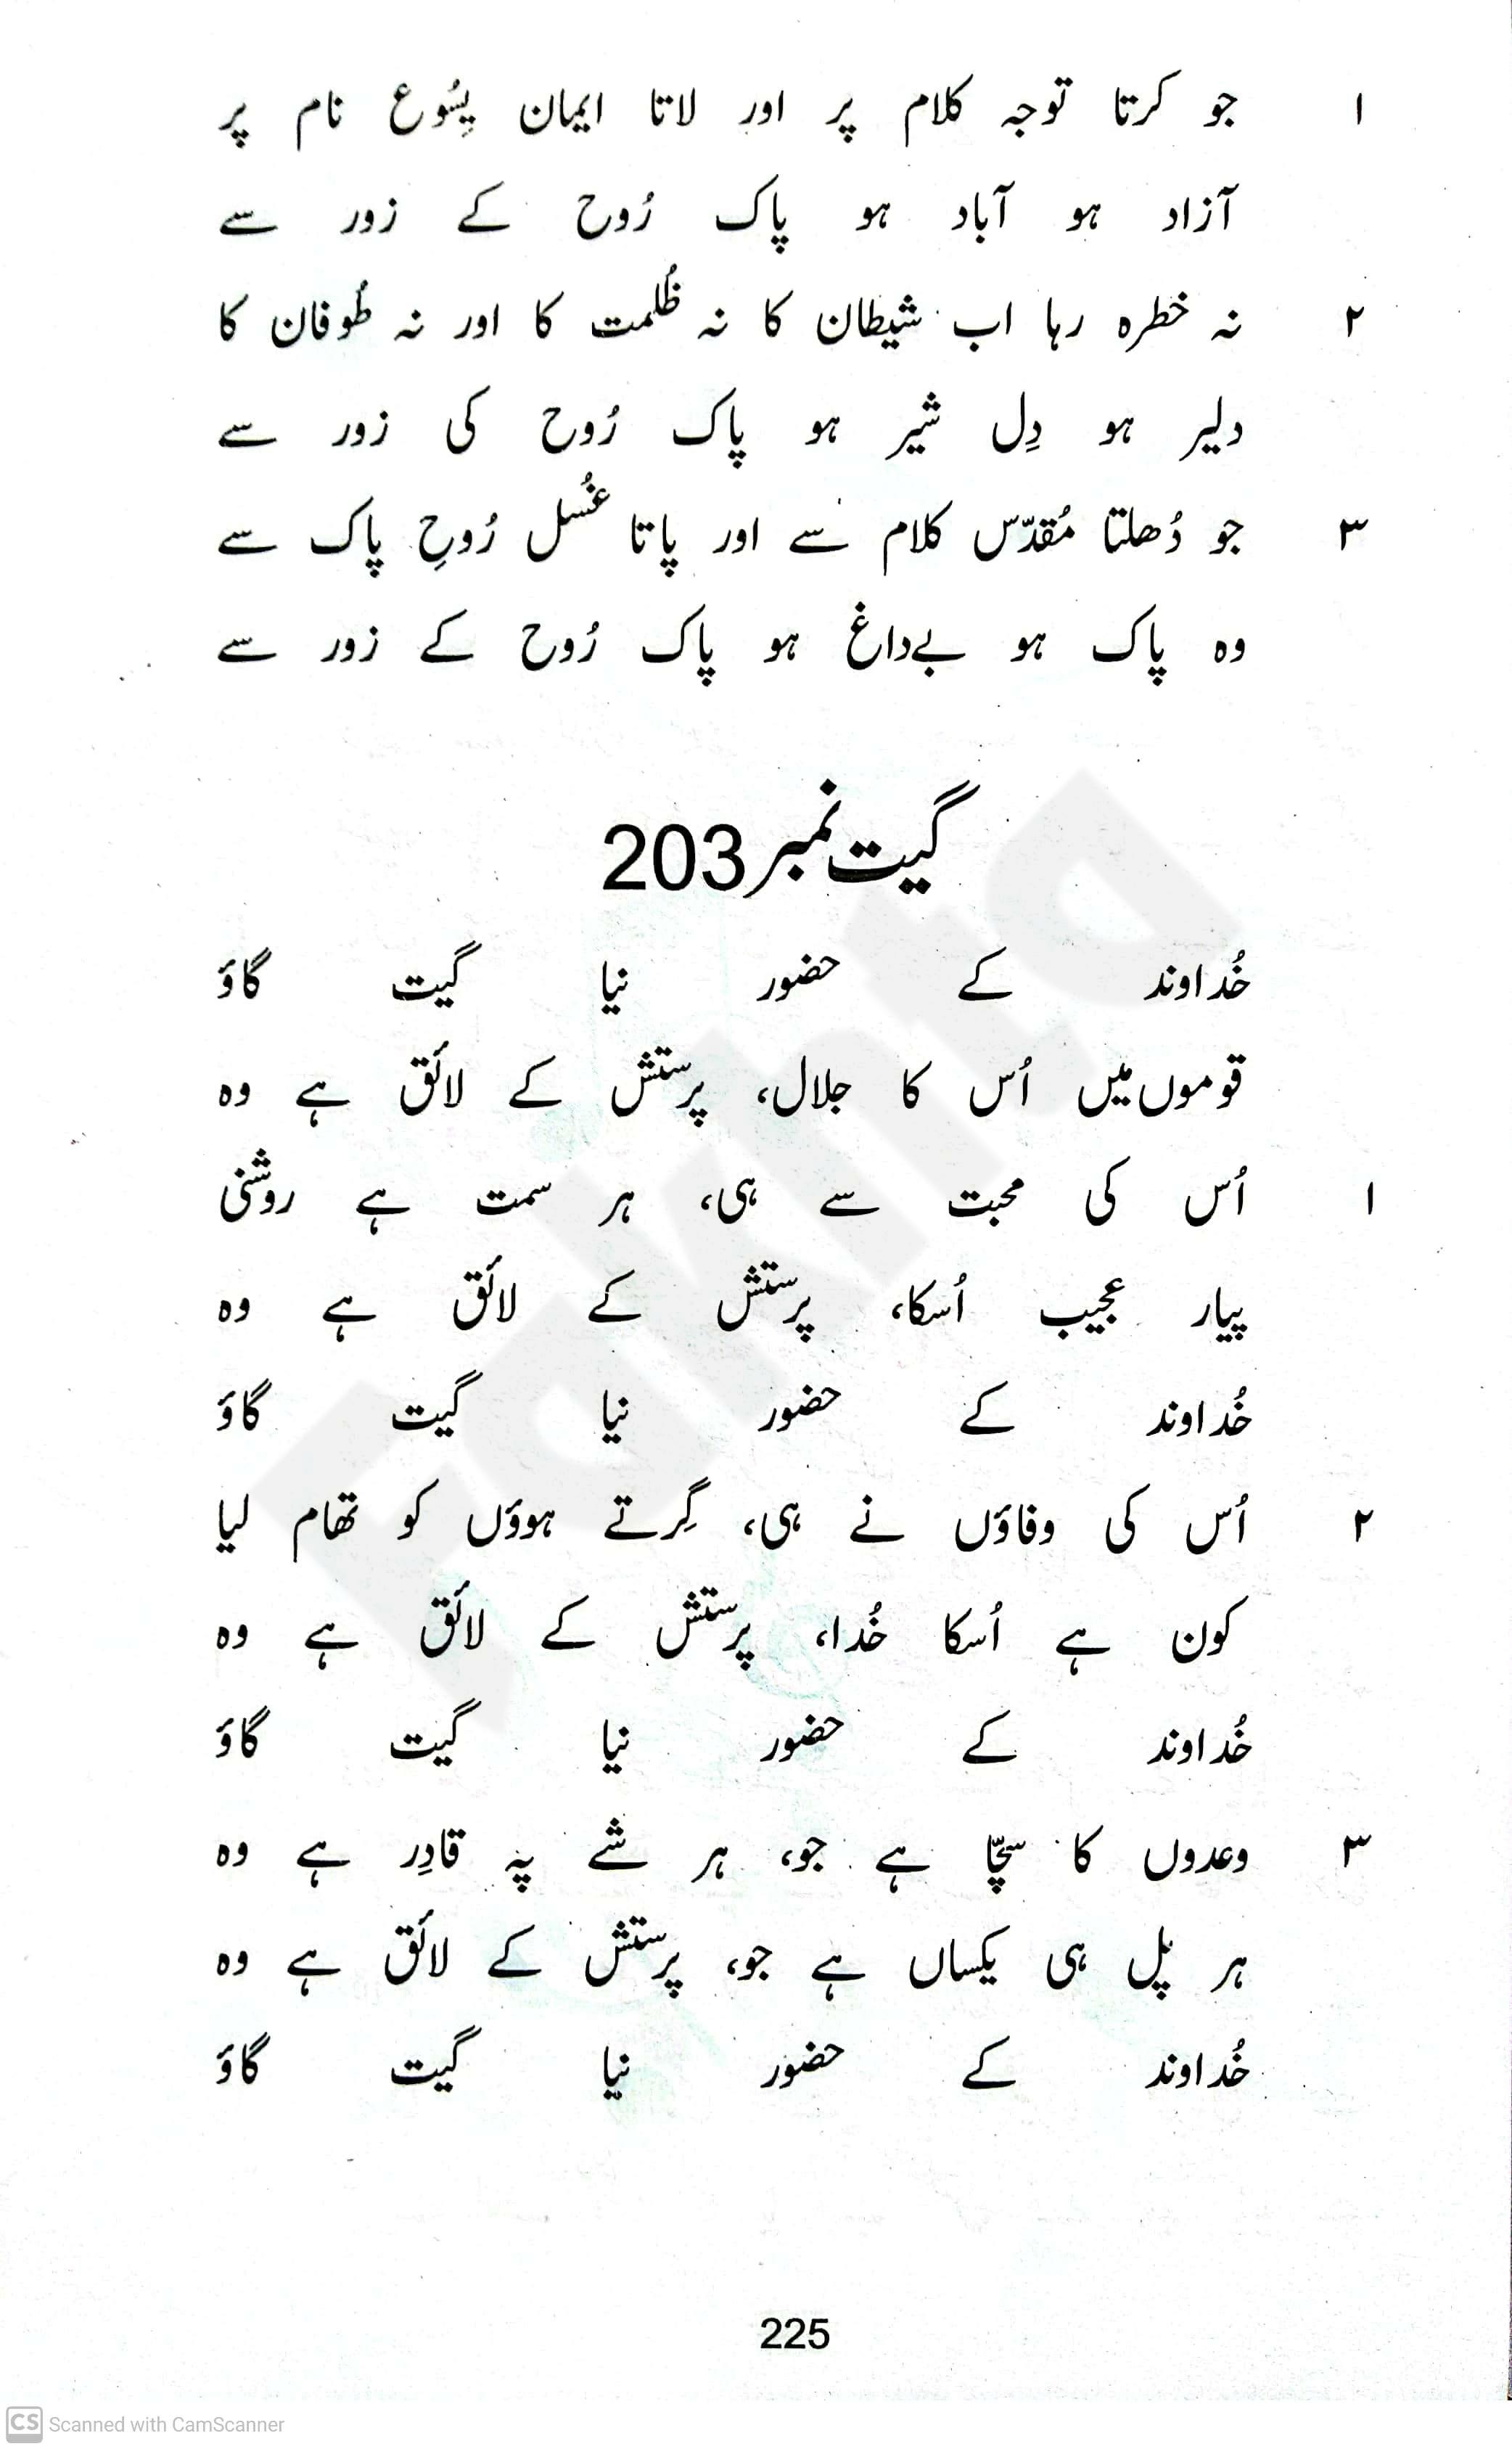 ۱ جو کرتا توجہ کلام پر اور لاتا ایمان یِسُوع نام پر
آزاد ہو آباد ہو پاک رُوح کے زور سے
۲ نہ خطرہ رہا اب شیطان کا نہ ظُلمت کا اور نہ طُوفان کا
دلیر ہو دِل شیر ہو پاک رُوح کی زور سے
۳ جو دُھلتا مُقدّس کلام سے اور پاتا غُسل رُوحِ پاک سے
وہ پاک ہو بےداغ ہو پاک رُوح کے زور سے
گیت نمبر 203
خُداوند کے حضور نیا گیت گاؤ
قوموں میں اُس کا جلال، پرستش کے لائق ہے وہ
۱ اُس کی محبت سے ہی، ہر سمت ہے روشنی
پیار عجیب اُسکا، پرستش کے لائق ہے وہ
خُداوند کے حضور نیا گیت گاؤ
۲ اُس کی وفاؤں نے ہی، گِرتے ہوؤں کو تھام لیا
کون ہے اُسکا خُدا، پرستش کے لائق ہے وہ
خُداوند کے حضور نیا گیت گاؤ
۳ وعدوں کا سچّا ہے جو، ہر شے پہ قادِر ہے وہ
ہر پل ہی یکساں ہے جو، پرستش کے لائق ہے وہ
خُداوند کے حضور نیا گیت گاؤ
Fakhta
225
CS Scanned with CamScanner